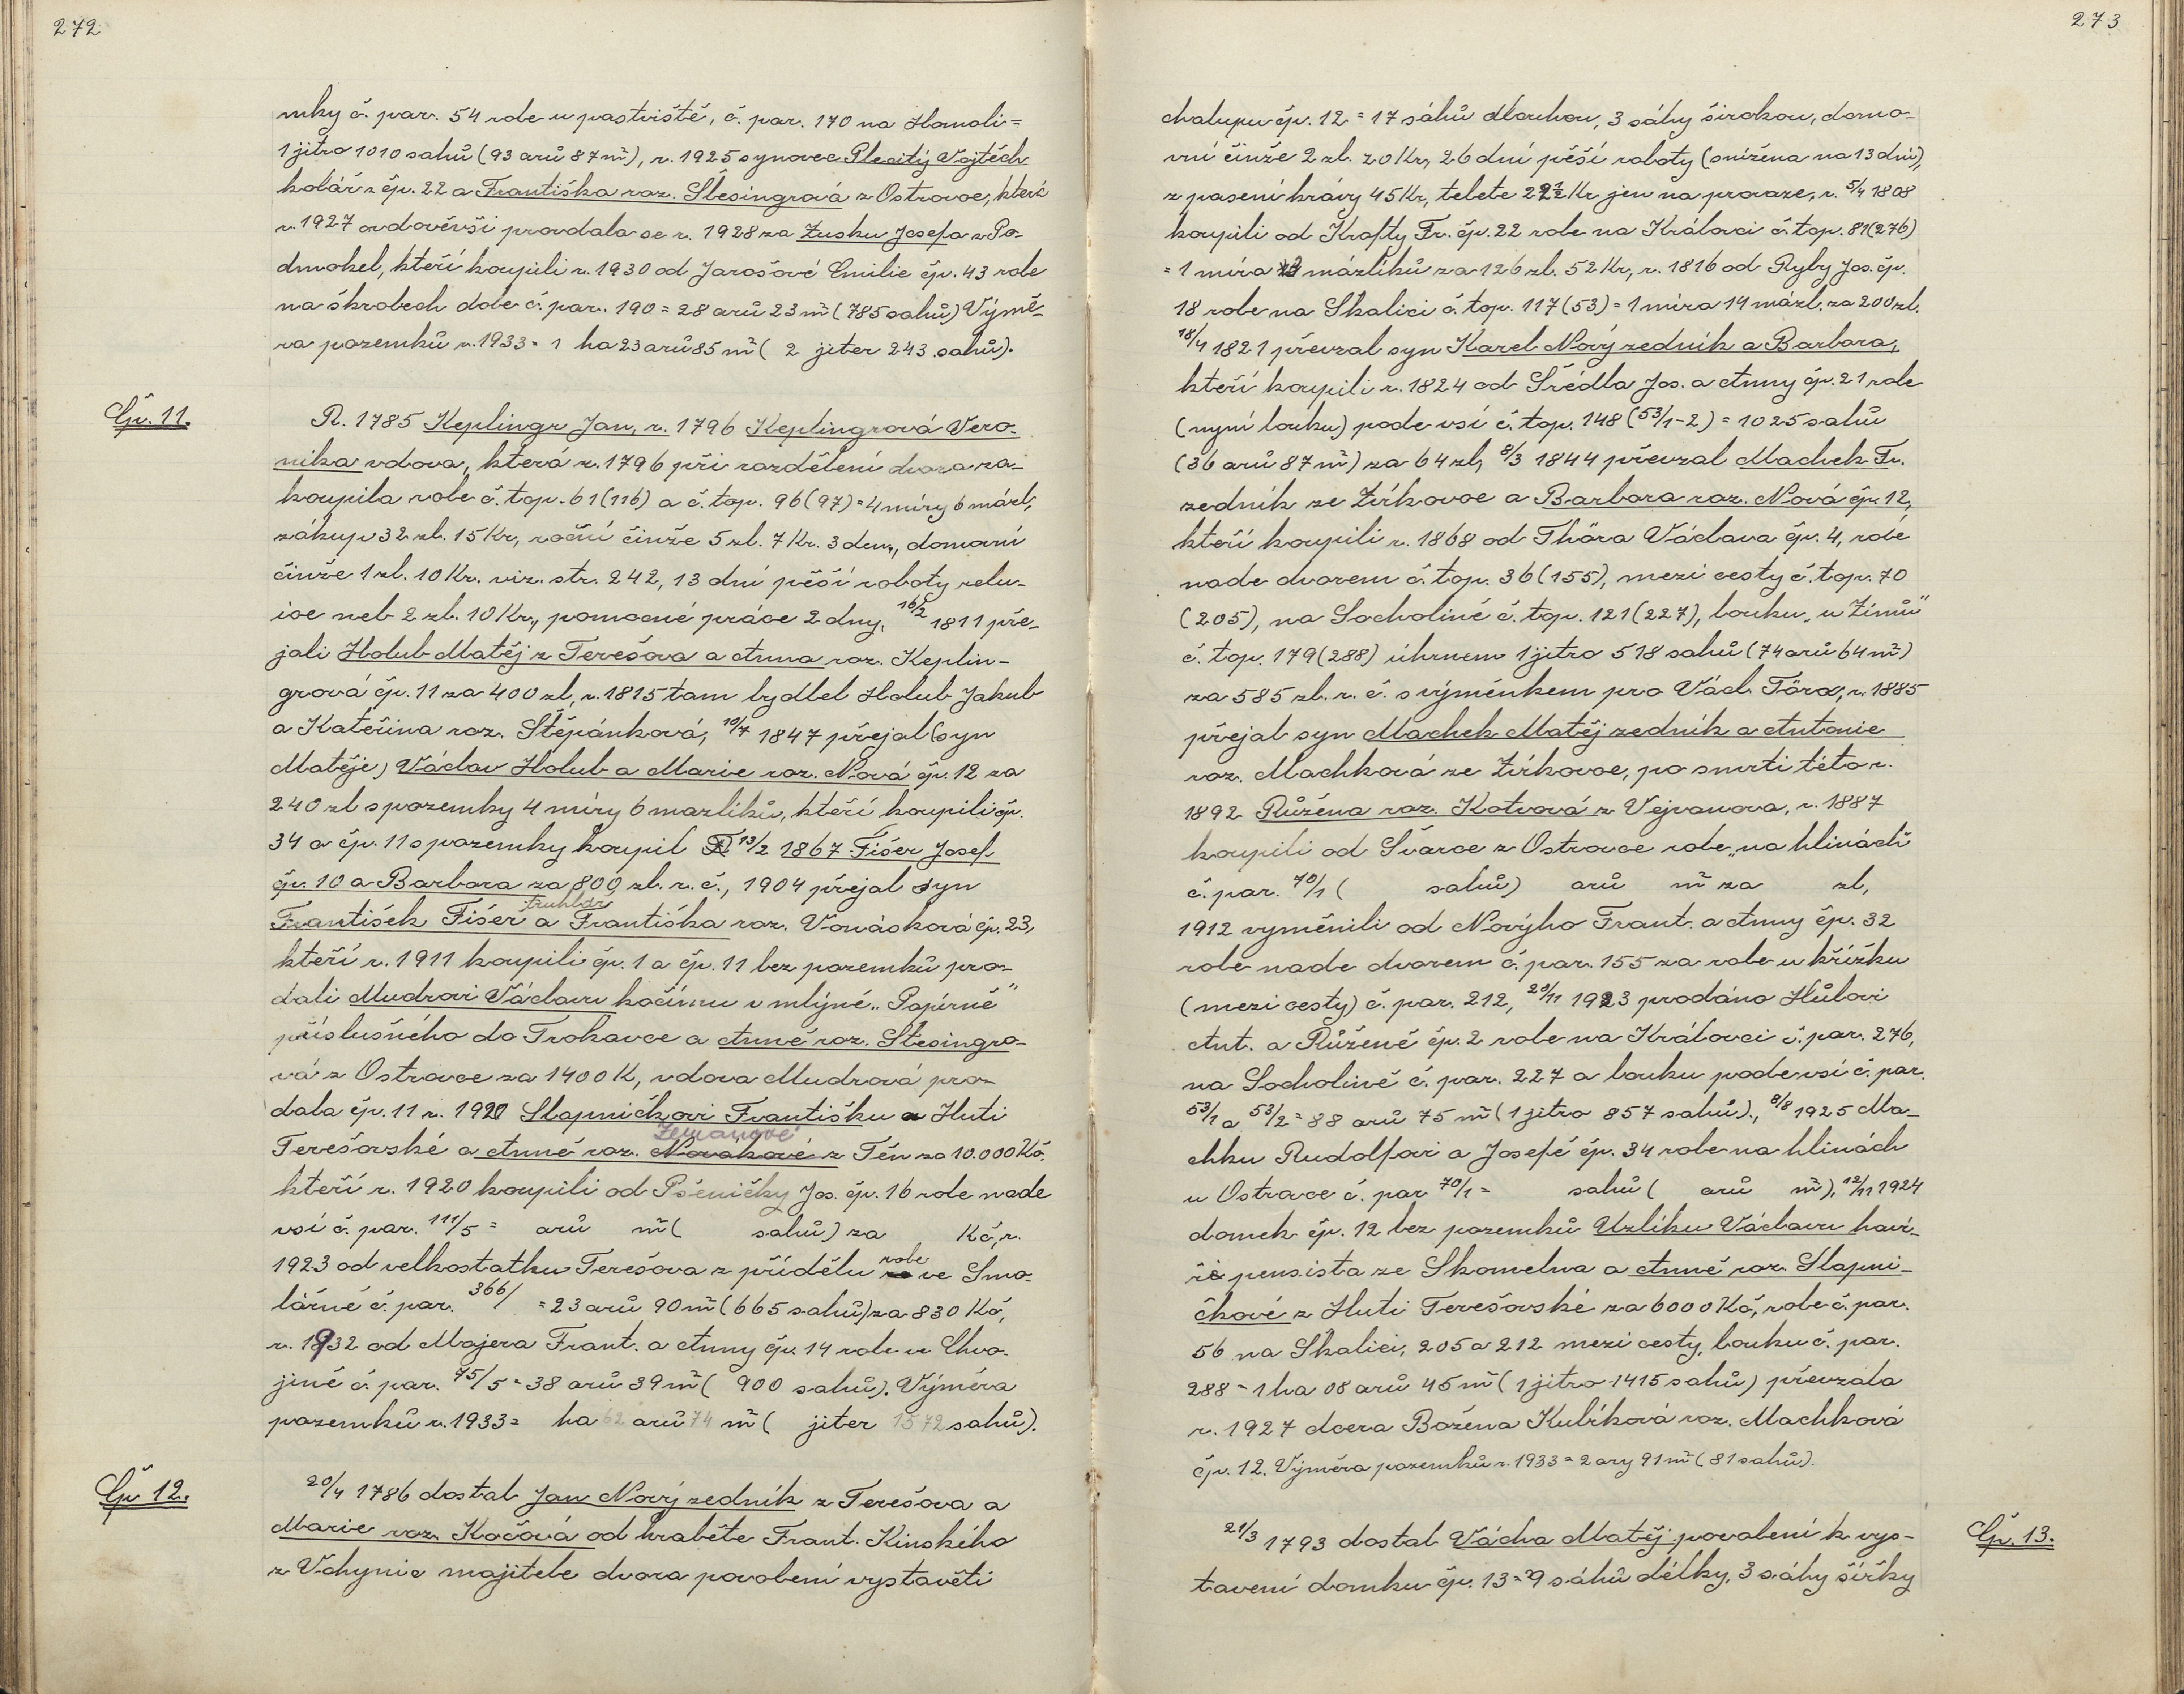 272
mky č. par. 54 role u pastviště, č. par. 170 na Homoli =
1 jitro 1010 sahů (93 arů 87 m²), r. 1925 synovec Plecitý Vojtěch
kolář z čp. 22 a Františka roz. Šlesingrová z Ostrovce, která
r. 1927 ovdověvši provdala se r. 1928 za Zusku Josefa z Po-
dmokel, kteří koupili r. 1930 od Jarošové Emilie čp. 43 role
na škrobech dole č. par. 190 = 28 arů 23 m² (785 sahů) Výmě-
ra pozemků r. 1933 = 1 ha 23 arů 85 m² ( 2 jiter 243 sahů).
Čp. 11.
R. 1785 Keplingr Jan, r. 1796 Keplingrová Vero-
nika vdova, která r. 1796 při rozdělení dvora za-
koupila role č. top. 61 (116) a č. top. 96 (97) = 4 míry 6 mázl,
zákup 32 zl. 15 Kr, roční činže 5 zl. 7 Kr. 3 den., domovní
činže 1 zl. 10 Kr. viz. str. 242, 13 dní pěší roboty relu-
ice neb 2 zl. 10 Kr., pomocné práce 2 dny, 16/2 1811 pře-
jali Holub Matěj z Terešova a Anna roz. Keplin-
grová čp. 11 za 400 zl, r. 1815 tam bydlel Holub Jakub
a Kateřina roz. Štěpánková, 10/7 1847 přejal (syn
Matěje) Václav Holub a Marie roz. Nová čp. 12 za
240 zl s pozemky 4 míry 6 mazlíků, kteří koupili čp.
34 a čp. 11 s pozemky koupil 13/2 1867 Fišer Josef
čp. 10 a Barbora za 800 zl. r. č., 1904 přejal syn
truhlář
František Fišer a Františka roz. Vonásková čp. 23,
kteří r. 1911 koupili čp. 1 a čp. 11 bez pozemků pro-
dali Mudrovi Václavu kočímu v mlýně „Papírně"
příslušného do Trokavce a Anně roz. Šlesingro-
vá z Ostrovce za 1400 K, vdova Mudrová pro-
dala čp. 11 r. 1920 Slapničkovi Františku z Huti
Zemanové
Terešovské a Anně roz. Novakové z Těn za 10.000 Kč.
kteří r. 1920 koupili od Pšeničky Jos. čp. 16 role nade
vsí č. par. 111/5 = arů m² ( sahů) za Kč, r.
role
1923 od velkostatku Terešova z přídělu ve Smo-
lárně č. par. 366/ = 23 arů 90 m² (665 sahů) za 830 Kč,
r. 1932 od Majera Frant. a Anny čp. 14 role u Chvo-
jině č. par. 75/5 = 38 arů 39 m² ( 900 sahů). Výměra
pozemků r. 1933 = ha 62 arů 74 m² ( jiter 1572 sahů).
Čp 12.
20/4 1786 dostal Jan Nový zedník z Terešova a
Marie roz. Kočová od hraběte Frant. Kinského
z Vchynic majitele dvora povolení vystavěti
273
chalupu čp. 12 = 17 sáhů dlouhou, 3 sáhy širokou, domo-
vní činže 2 zl. 20 Kr, 26 dní pěší roboty (snížena na 13 dní),
z pasení krávy 45 Kr, telete 22½ Kr jen na provaze, r. 5/4 1808
koupili od Krafty Fr. čp. 22 role na Královci č. top. 81 (276)
= 1 míra mázlíků za 126 zl. 52 Kr, r. 1816 od Ryby Jos. čp.
18 role na Skalici č. top. 117 (53) = 1 míra 14 mázl. za 200 zl.
18/4 1821 převzal syn Karel Nový zedník a Barbora,
kteří koupili r. 1824 od Šrédla Jos. a Anny čp. 21 role
(nyní louku) pode vsí č. top. 148 (53/1-2) = 1025 sahů
(36 arů 87 m²) za 64 zl, 8/3 1844 převzal Machek Fr.
zedník ze Zvíkovce a Barbora roz. Nová čp. 12,
kteří koupili r. 1868 od Thöra Václava čp. 4, role
nade dvorem č. top. 36 (155), mezi cesty č. top. 70
(205), na Socholině č. top. 121 (227), louku „u Zímů"
č. top. 179 (288) úhrnem 1 jitro 518 sahů (74 arů 64 m²)
za 585 zl. r. č. s výměnkem pro Václ. Töra, r. 1885
přejal syn Machek Matěj zedník a Antonie
roz. Machková ze Zvíkovce, po smrti této r.
1892 Růžena roz. Kotvová z Vejvanova, r. 1887
koupili od Švarce z Ostrovce role „na hlinách"
č. par. 70/1 ( sahů) arů m² za zl,
1912 vyměnili od Novýho Frant. a Anny čp. 32
role nade dvorem č. par. 155 za role u křížku
(mezi cesty) č. par. 212, 20/11 1923 prodáno Hůlovi
Ant. a Růženě čp. 2 role na Královci č. par. 276,
na Socholině č. par. 227 a louku pode vsí č. par.
53/1 a 53/2 = 88 arů 75 m² (1 jitro 857 sahů)., 8/8 1925 Ma-
chku Rudolfovi a Josefě čp. 34 role na hlinách
u Ostrovce č. par 70/1 = sahů ( arů m²), 12/11 1924
domek čp. 12 bez pozemků Uzlíku Václavu haví-
ři pensista ze Skomelna a Anně roz. Slapni-
čkové z Huti Terešovské za 6000 Kč, role č. par.
56 na Skalici, 205 a 212 mezi cesty, louku č. par.
288 = 1 ha 08 arů 45 m² (1 jitro 1415 sahů) převzala
r. 1927 dcera Božena Kulíková roz. Machková
čp. 12. Výměra pozemků r. 1933 = 2 ary 91 m² (81 sahů).
Čp. 13.
21/3 1793 dostal Vácha Matěj povolení k vys-
tavení domku čp. 13 = 9 sáhů délky, 3 sáhy šířky